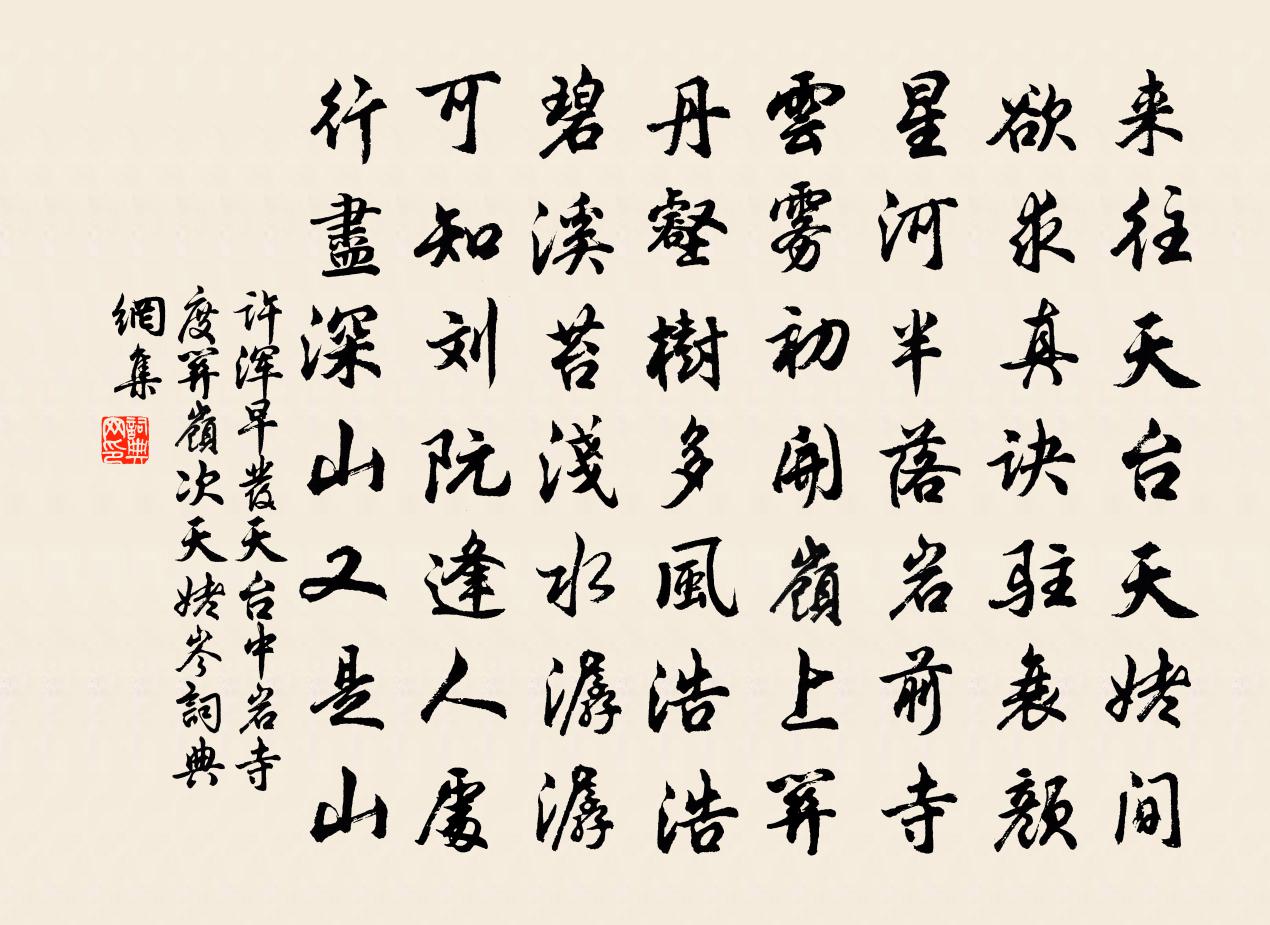 来往天台天姥间
欲求真诀驻衰颜
星河半落岩前寺
雲雾初開嶺上関
丹壑樹多風浩浩
碧溪苔淺水潺潺
可知刘阮逢人處
行盡深山又是山
许浑早發天台中岩寺
度関嶺次天姥岑詞典
網集
詞典网印